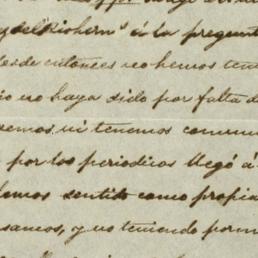 á la pregunt
desde entonces no hemos ten
io no haya sido por falta d
emos, ni tenemos commu
por los periodicos llegó á
hemos sentido como propia
samos, y no teniendo porm